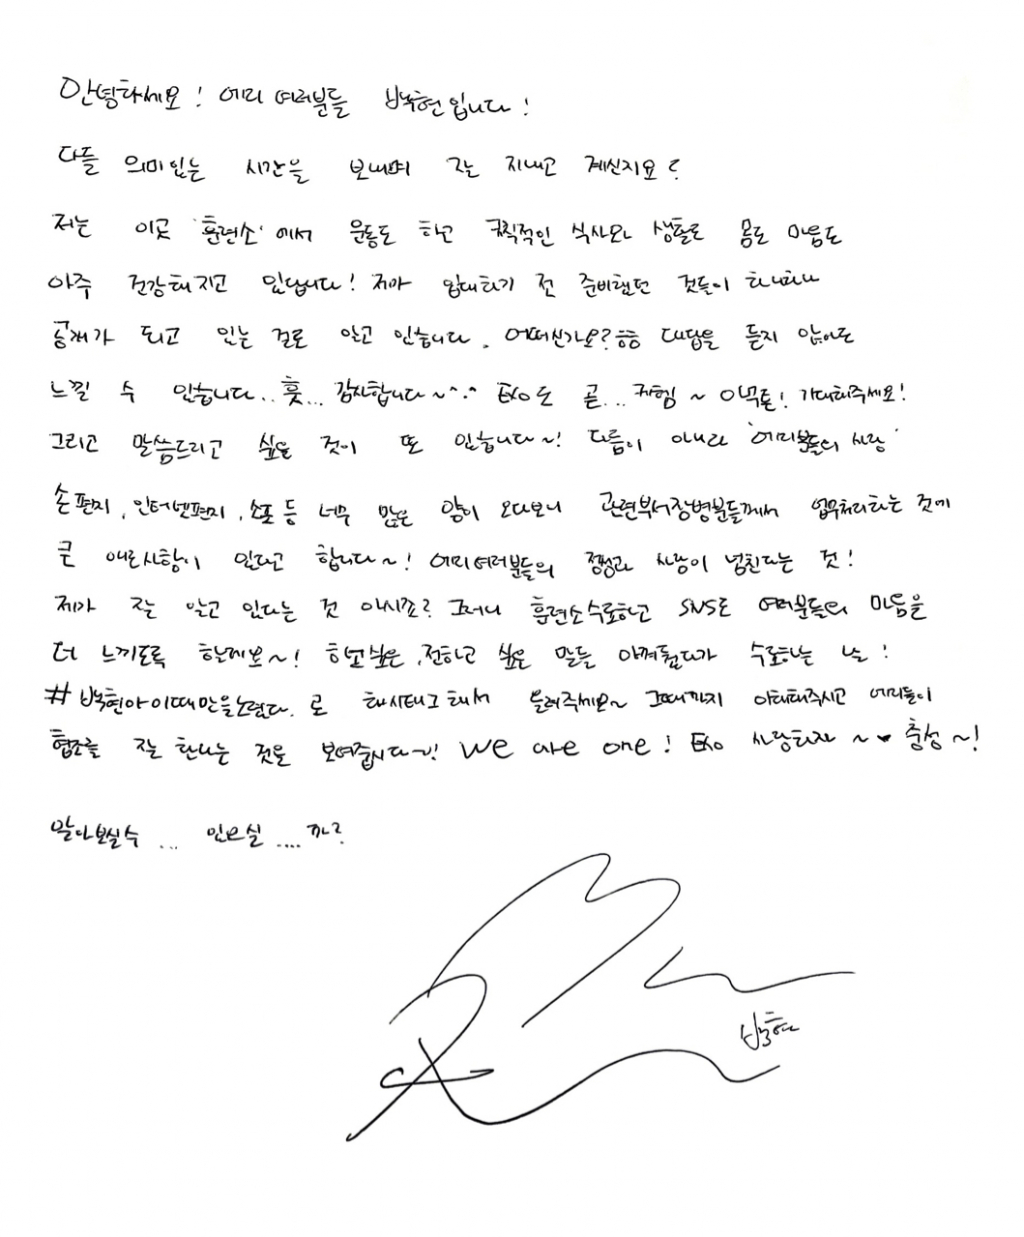 안녕하세요! 에리 여러분들 백현입니다!
다들 의미있는 시간을 보내며 잘 지내고 계신지요?
저는 이곳 '훈련소'에서 운동도 하고 규칙적인 식사와 생활로 몸도 마음도
아주 건강해지고 있답니다! 제가 입대하기 전 준비했던 것들이 하나하나
공개가 되고 있는 걸로 알고 있습니다. 어떠신가요? 흠흠 대답을 듣지 않아도
느낄 수 있습니다.. 훗... 감사합니다~^.^ EXO도 곧... 커험~ 아무튼! 기대해주세요!
그리고 말씀드리고 싶은 것이 또 있습니다~! 다름이 아니라 '에리분들의 사랑'
손편지, 인터넷편지, 소포 등 너무 많은 양이 오다보니 관련부서장병분들께서 업무처리하는 것에
큰 애로사항이 있다고 합니다~! 에리여러분들의 정성과 사랑이 넘친다는 것!
제가 잘 알고 있다는 것 아시죠? 그러니 훈련소수료하고 SNS로 여러분들의 마음을
더 느끼도록 할게요~! 하고싶은, 전하고 싶은 말들 아껴뒀다가 수료하는 날!
#백현아이때만을노렸다. 로 해시태그해서 올려주세요~ 그때까지 이해해주시고 에리들이
협조를 잘 한다는 것을 보여줍시다~! we are one! EXO 사랑하자~♥ 충성~!
알아보실수 ... 있으실 .... 까?
백현